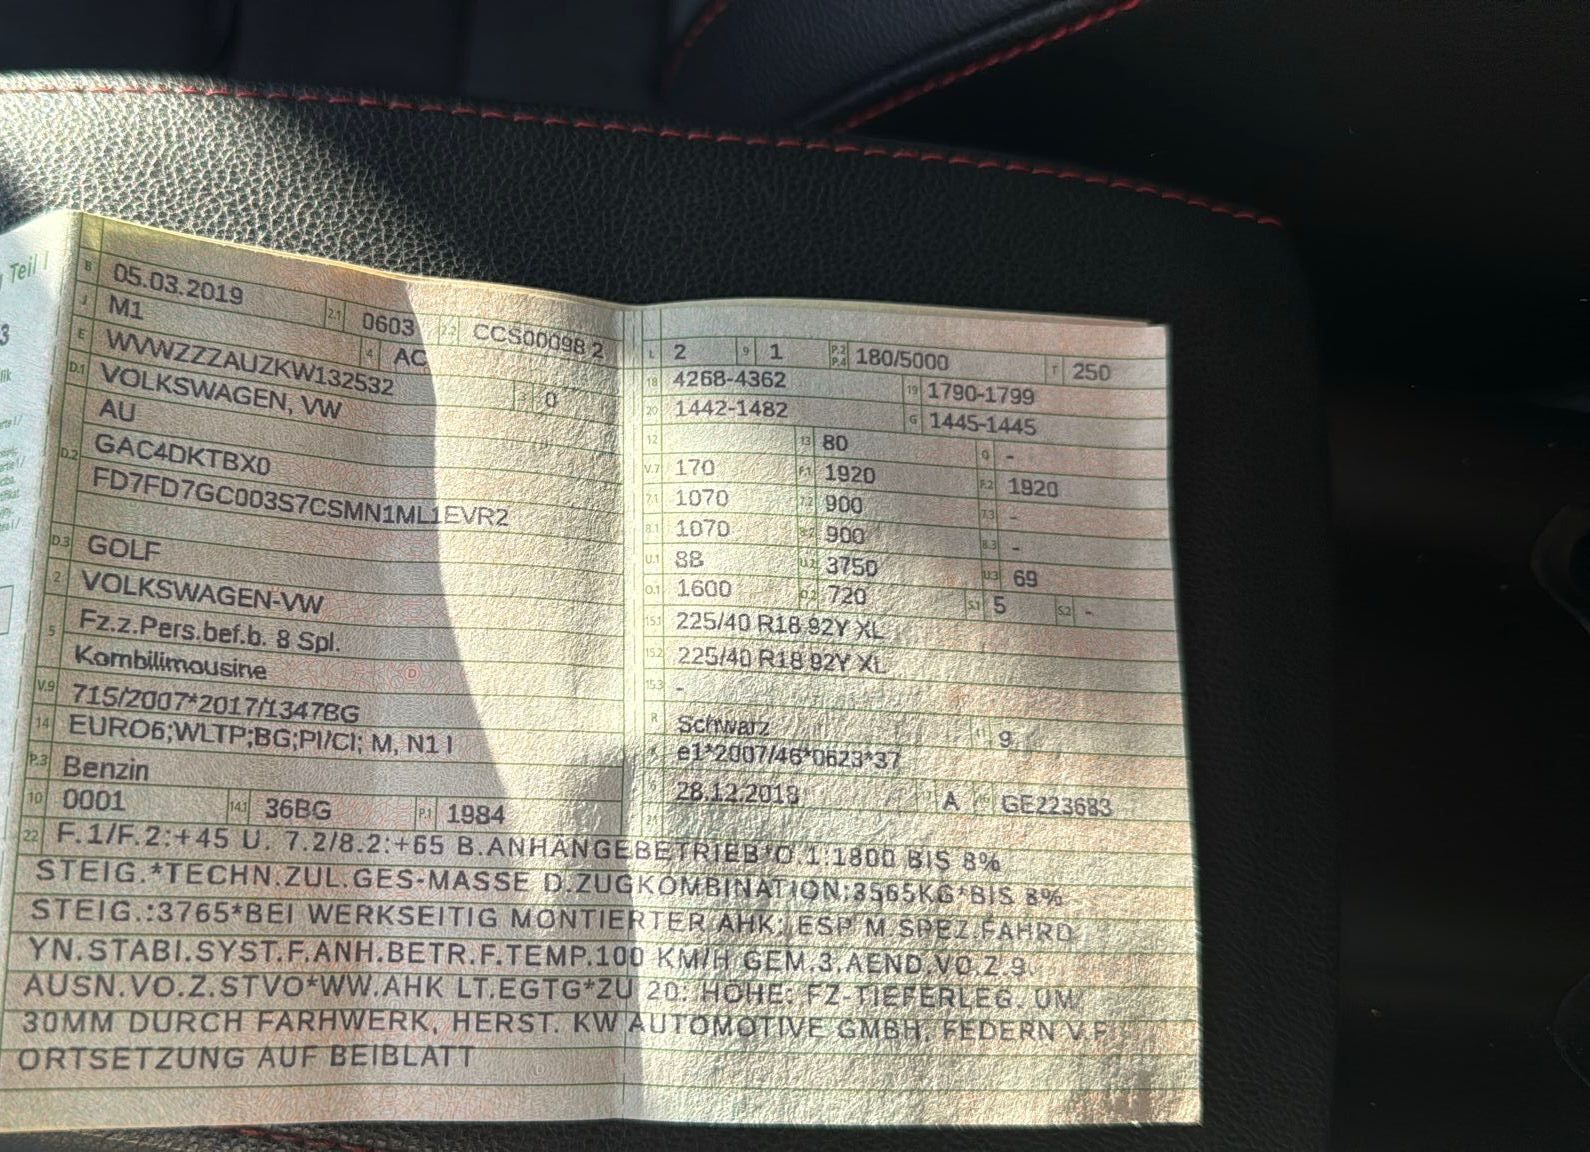 Teil I
3
B 05.03.2019 2.1 0603 2.2 CCS00098 2
J M1 4 AC
E WVWZZZAUZKW132532 3 0
D.1 VOLKSWAGEN, VW
AU
D.2 GAC4DKTBX0
FD7FD7GC003S7CSMN1ML1EVR2
D.3 GOLF
2 VOLKSWAGEN-VW
5 Fz.z.Pers.bef.b. 8 Spl.
Kombilimousine
V.9 715/2007*2017/1347BG
14 EURO6;WLTP;BG;PI/CI; M, N1 I
P.3 Benzin
10 0001 14.1 36BG P.1 1984
L 2 9 1 P.2 P.4 180/5000 T 250
18 4268-4362 19 1790-1799
20 1442-1482 G 1445-1445
12 13 80 Q -
V.7 170 F.1 1920 F.2 1920
7.1 1070 7.2 900 7.3 -
8.1 1070 8.2 900 8.3 -
U.1 88 U.2 3750 U.3 69
O.1 1600 O.2 720 S.1 5 S.2 -
15.1 225/40 R18 92Y XL
15.2 225/40 R18 92Y XL
15.3 -
R Schwarz 11 9
K e1*2007/46*0623*37
6 28.12.2018 17 A 16 GE223683
21
22 F.1/F.2:+45 U. 7.2/8.2:+65 B.ANHÄNGEBETRIEB*O.1:1800 BIS 8%
STEIG.*TECHN.ZUL.GES-MASSE D.ZUGKOMBINATION:3565KG*BIS 8%
STEIG.:3765*BEI WERKSEITIG MONTIERTER AHK: ESP M.SPEZ.FAHRD
YN.STABI.SYST.F.ANH.BETR.F.TEMP.100 KM/H GEM.3.AEND.VO.Z.9.
AUSN.VO.Z.STVO*WW.AHK LT.EGTG*ZU 20: HÖHE: FZ-TIEFERLEG. UM
30MM DURCH FARHWERK, HERST. KW AUTOMOTIVE GMBH, FEDERN V.F
ORTSETZUNG AUF BEIBLATT